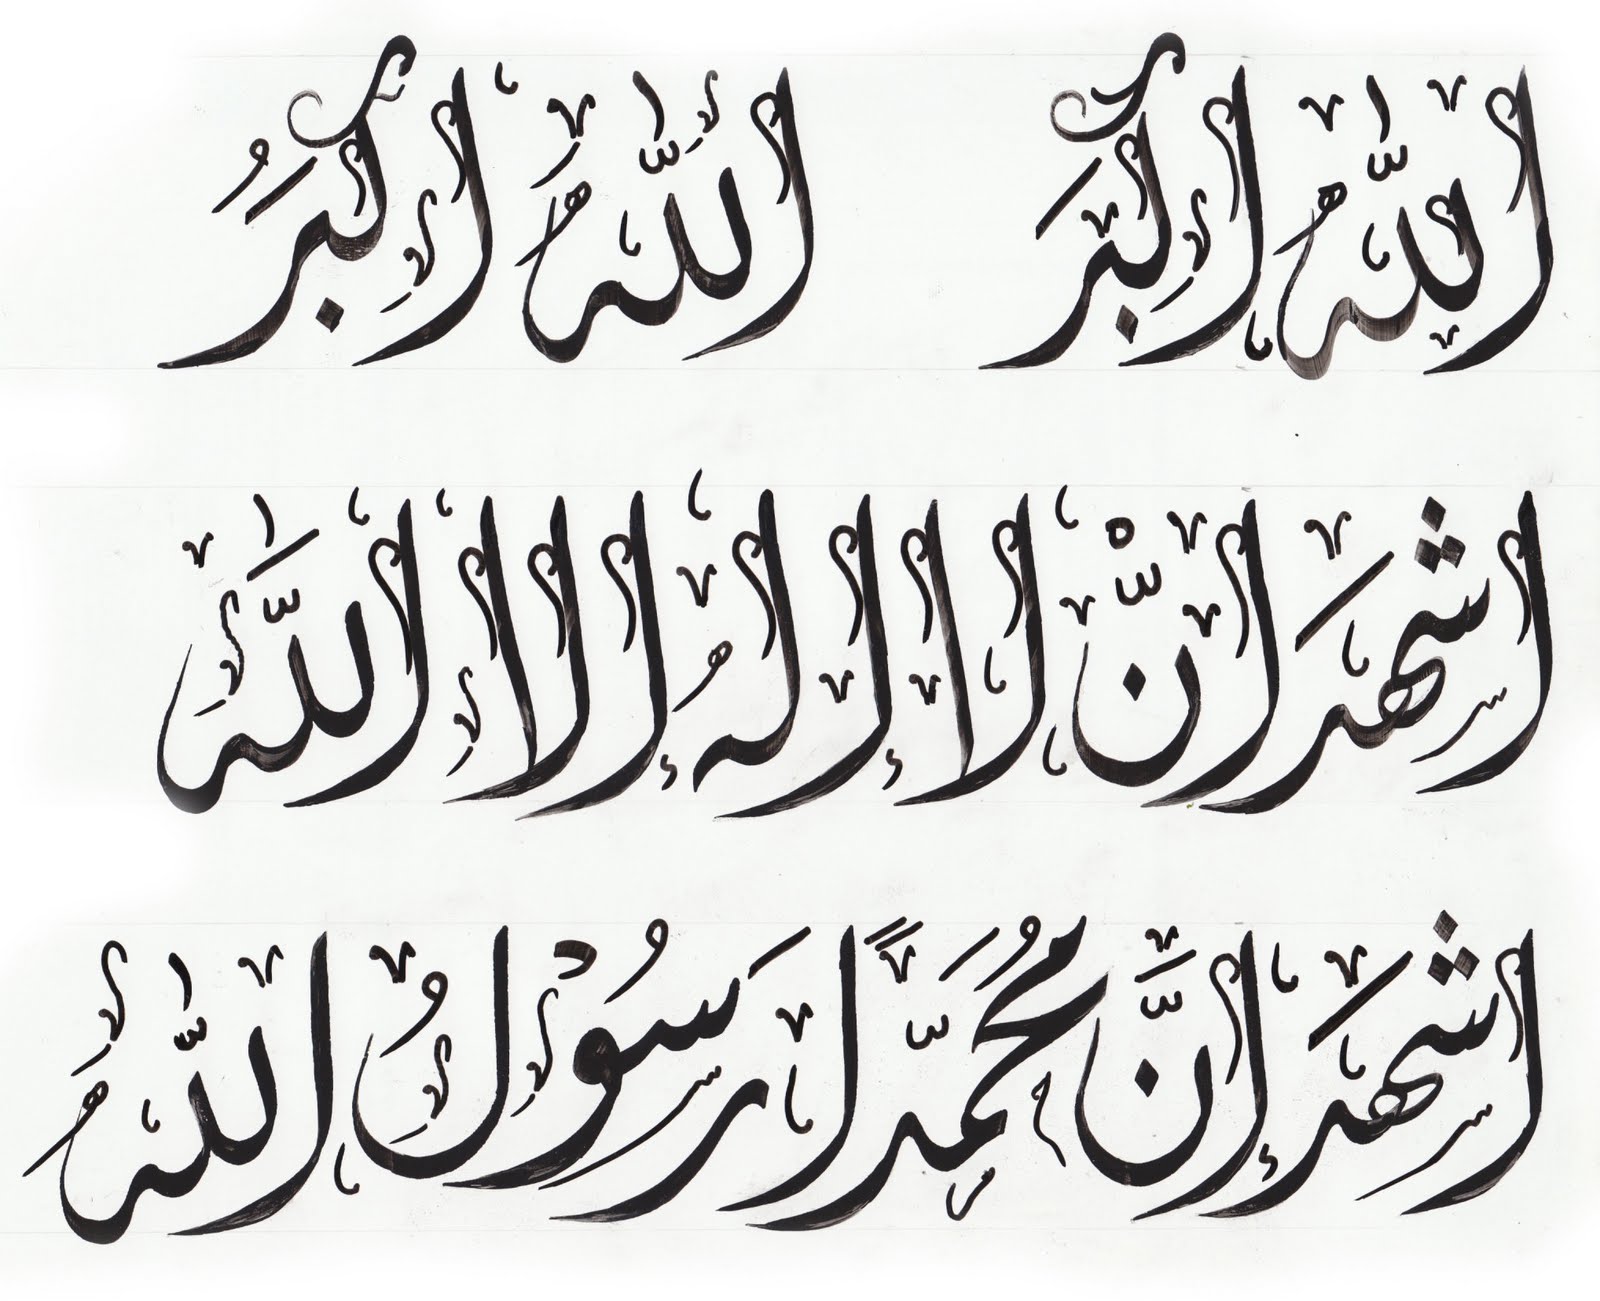 اللهُ أكبَر اللهُ أكبَرُ
اشهَد انّْ لا إلهُ إلا اللَّه
اشهَد إنَّ مُحَمَّداً رَسُوْلُ اللهُ